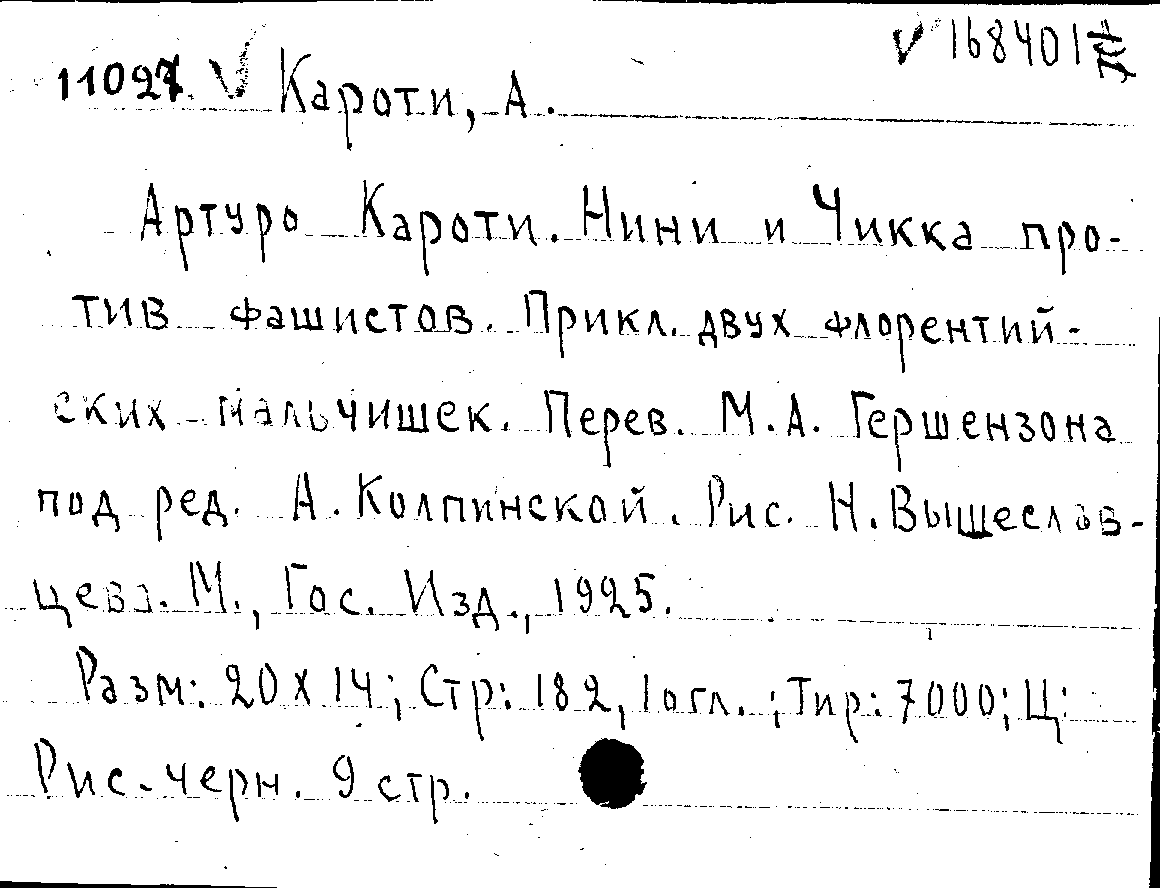 V 168401
11027. V Кароти, А.
Артуро Кароти. Нини и Чикка про-
тив фашистов. Прикл. двух флорентий-
ских мальчишек. Перев. М.А. Гершензона
под ред. А. Колпинской. Рис. Н. Вышеслав-
цева. М., Гос. Изд., 1925.
Разм: 20 х 14; Стр: 182, 1 огл.; Тир: 7000; Ц:
Рис. черн. 9 стр.